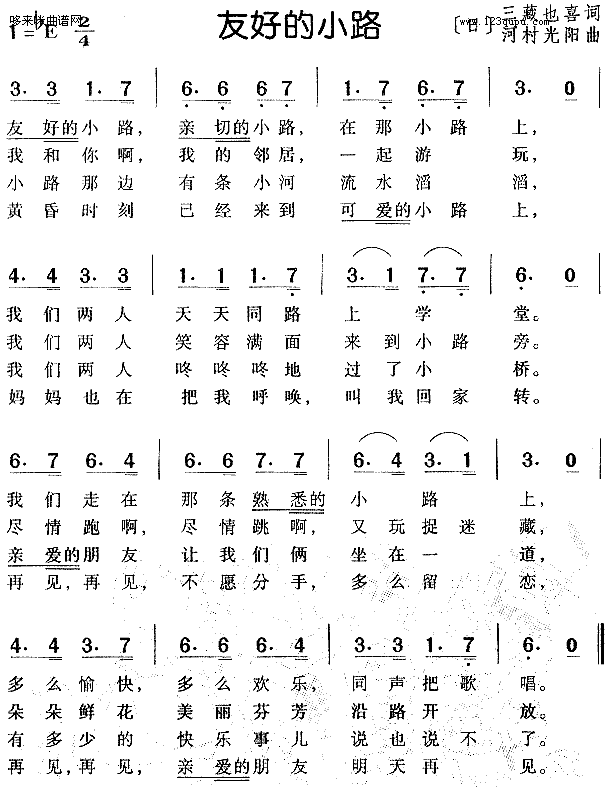 哆来咪曲谱网
友好的小路
1=♭E 2/4
[日] 三藏也喜词
河村光阳曲
3. 3 1. 7 | 6. 6 6. 7 | 5. 5 1. 7 | 3. 0 |
友好的小路， 亲切的小路， 在那小路上，
我和你啊， 我的邻居， 一起游玩，
小路那边 有条小河 流水滔滔，
黄昏时刻 已经来到 可爱的小路上，
4. 4 3. 3 | 1. 1 1. 7 | 3. 1 7. 7 | 6. 0 |
我们两人 天天同路 上学堂。
我们两人 笑容满面 来到小路旁。
我们两人 咚咚咚地 过了小桥。
妈妈也在 把我呼唤， 叫我回家转。
6. 7 6. 4 | 6. 6 7. 7 | 6. 4 3. 1 | 3. 0 |
我们走在 那条熟悉的 小路上，
尽情跑啊， 尽情跳啊， 又玩捉迷藏，
亲爱的朋友 让我们俩 坐在一道，
再见，再见， 不愿分手， 多么留恋，
4. 4 3. 7 | 6. 6 6. 4 | 3. 3 1. 7 | 6. 0 ‖
多么愉快， 多么欢乐， 同声把歌唱。
朵朵鲜花 美丽芬芳 沿路开放。
有多少的 快乐事儿 说也说不了。
再见，再见， 亲爱的朋友 明天再见。